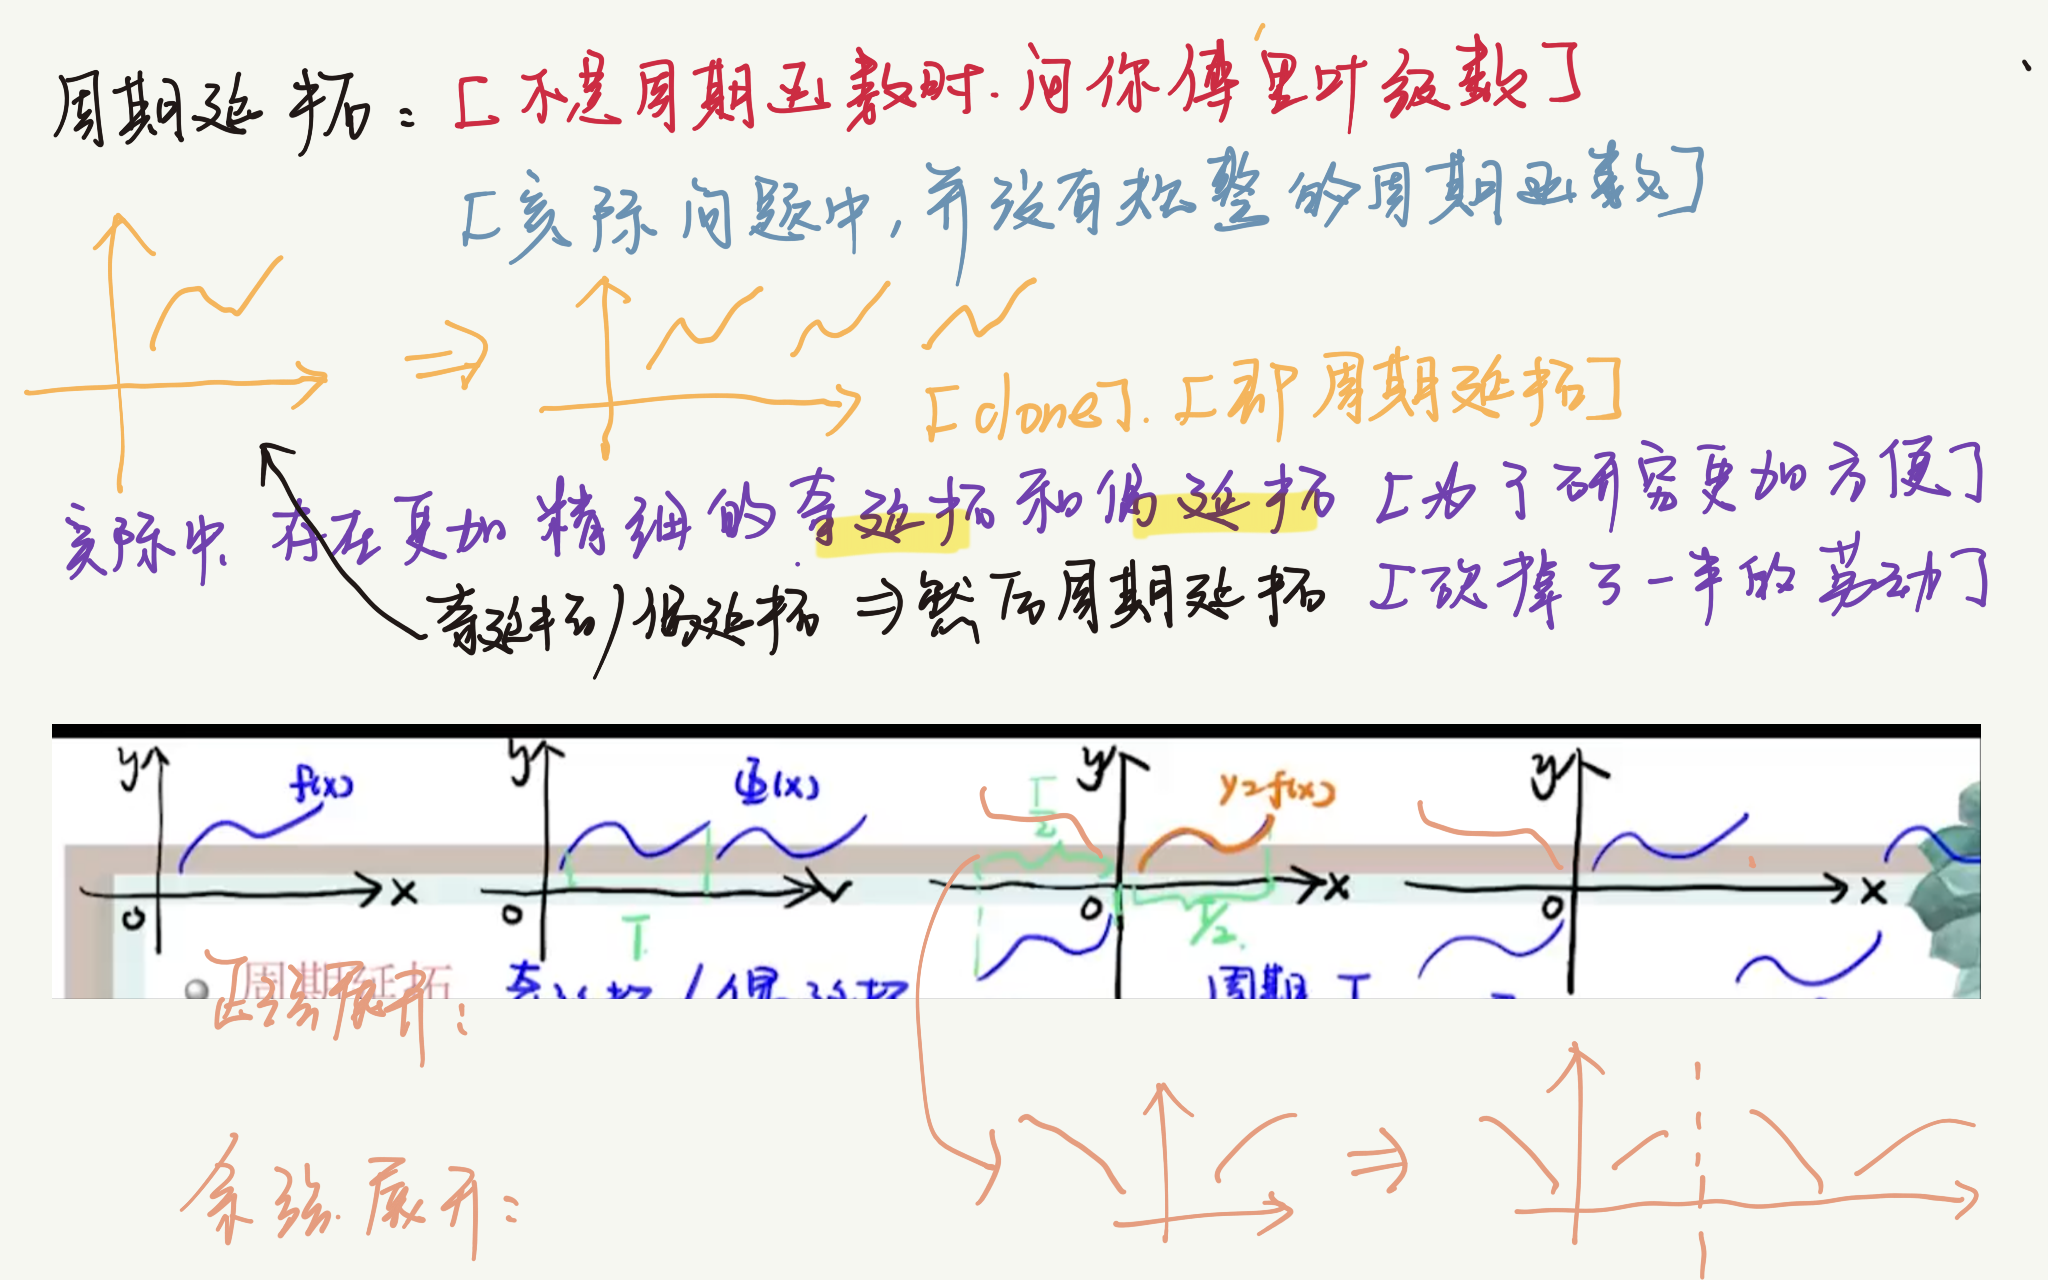 周期延拓：[不是周期函数时.问你傅里叶级数]
[实际问题中,并没有规整的周期函数]
[clone].[即周期延拓]
实际中.存在更加精细的奇延拓和偶延拓 [为了研究更加方便]
奇延拓/偶延拓 ⇒ 然后周期延拓 [砍掉了一半的劳动]
y f(x) y Φ(x) T/2 y y=f(x) y
x x x
0 0 T 0 T/2 0
周期延拓 奇延拓/偶延拓 周期 T
正弦展开：
余弦.展开：